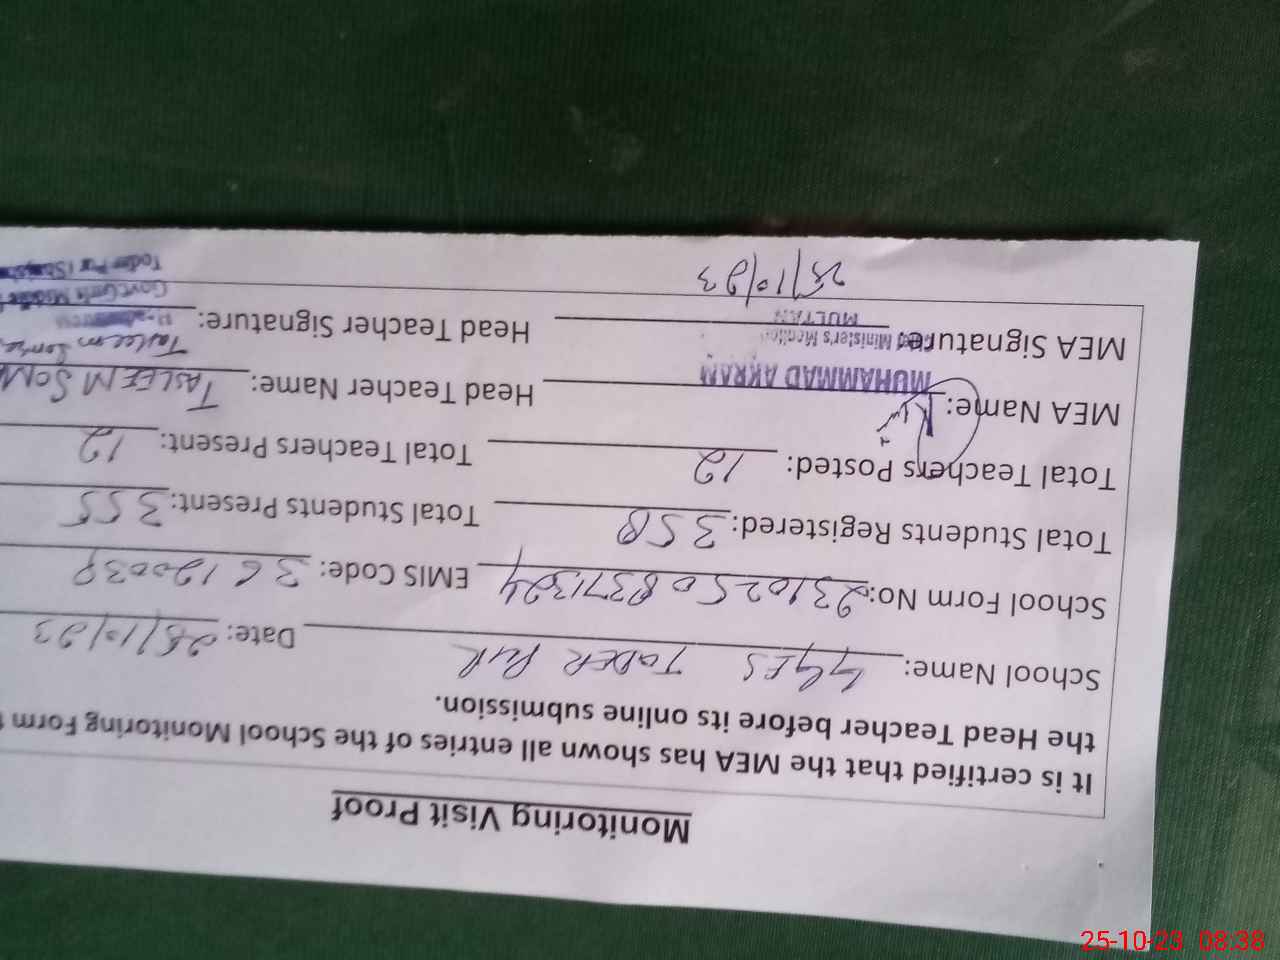 Monitoring Visit Proof
It is certified that the MEA has shown all entries of the School Monitoring Form
the Head Teacher before its online submission.
School Name: GGES TODER PUR Date: 25/10/23
School Form No: 23102508371324 EMIS Code: 36120039
Total Students Registered: 358 Total Students Present: 355
Total Teachers Posted: 12 Total Teachers Present: 12
MEA Name: MUHAMMAD AKRAM Head Teacher Name: TASLEEM
MEA Signature: Minister's MULTAN Head Teacher Signature: Tasleem
Govt. Girls
25/10/23 Toder Pur
25-10-23 08:38